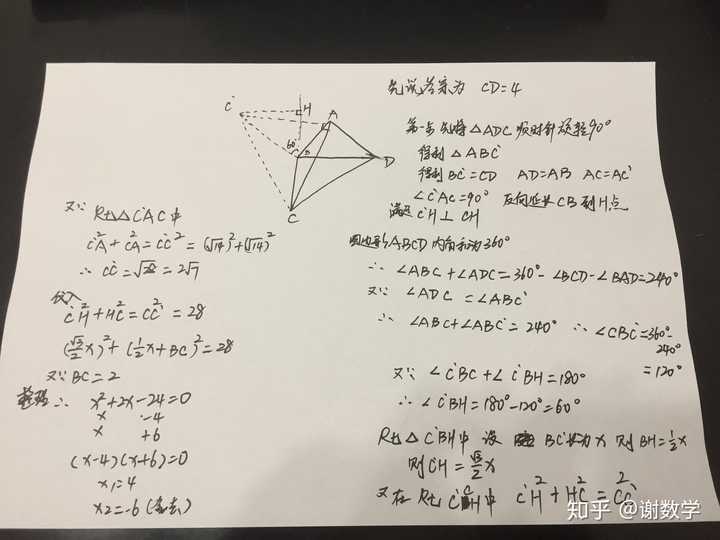 先说答案为 CD=4
第一步先将△ADC顺时针旋转90°
得到△ABC'
得到 BC'=CD AD=AB AC=AC'
∠C'AC=90° 反向延长CB到H点
满足C'H⊥CH
四边形ABCD内角和为360°
∴ ∠ABC+∠ADC=360°-∠BCD-∠BAD=240°
又∵ ∠ADC=∠ABC'
∴ ∠ABC+∠ABC'=240° ∴ ∠CBC'=360°-240°=120°
又∵ ∠C'BC+∠C'BH=180°
∴ ∠C'BH=180°-120°=60°
Rt△C'BH中 设 BC'长为x 则BH=½x
则C'H=√3/2 x
又在Rt C'CH中 C'H²+HC²=CC'²
C' H A 60° B D C
又∵ Rt△C'AC中
C'A²+CA²=CC'²=(√14)²+(√14)²
∴ CC'=√28=2√7
代入
C'H²+HC²=CC'²=28
(√3/2 x)²+(½x+BC)²=28
又∵ BC=2
整理∴ x²+2x-24=0
x -4
x +6
(x-4)(x+6)=0
x₁=4
x₂=-6(舍去)
知乎 @谢数学